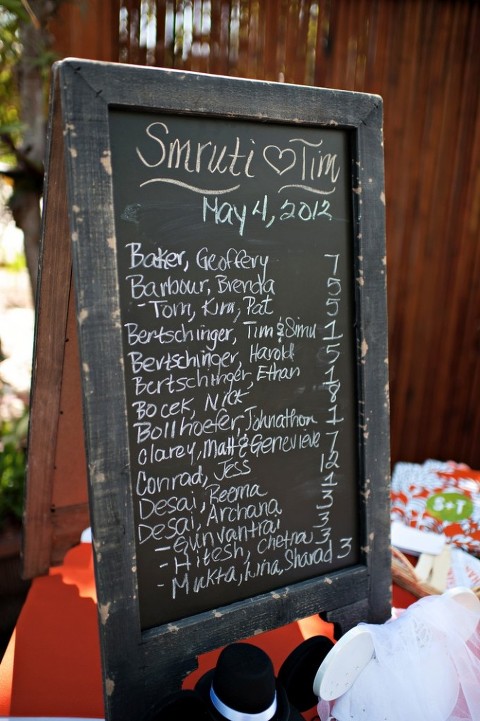 Smruti ♡ Tim
May 4, 2012
Baker, Geoffery 7
Barbour, Brenda 5
- Tom, Kim, Pat 5
Bertschinger, Tim & Simu 1
Bertschinger, Harold 5
Bertschinger, Ethan 1
Bocek, Nick 8
Bollhoefer, Johnathon 1
Clarey, Matt & Genevieve 7
Conrad, Jess
Desai, Reema 3
Desai, Archana 4
- Gunvantrai 3
- Hitesh, Chetna 3
- Mukta, Lina, Sharad 3
S+T